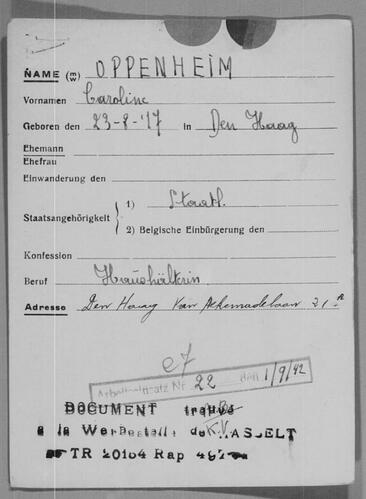 NAME (m/w) OPPENHEIM
Vornamen Caroline
Geboren den 23-8-'17 in Den Haag
Ehemann
Ehefrau
Einwanderung den
Staatsangehörigkeit { 1) Staatl.
2) Belgische Einbürgerung den
Konfession
Beruf Haushälterin
Adresse Den Haag Van Alkemadelaan 21 A
e7
Arbeitseinsatz Nr 22 den 1/9/42
DOCUMENT trouvé
a la Werbestelle de HASSELT
TR 20164 Rap